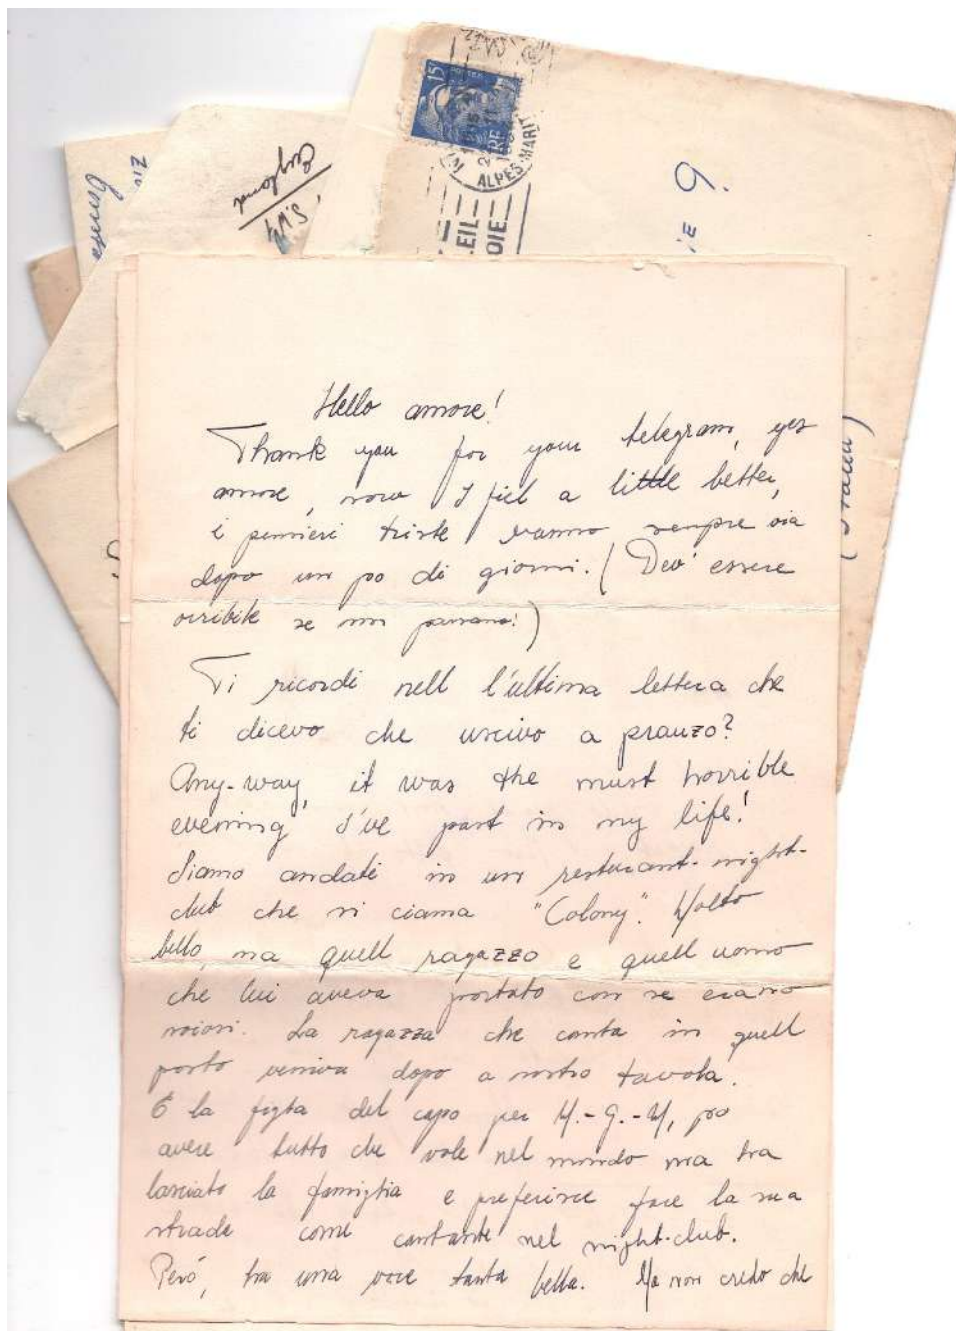 15
RF
ALPES-MARIT
EIL
OIE
England
S.W.4
6
Hello amore!
Thank you for your telegram, yes
amore, now I fiel a little better,
i pensieri triste vanno sempre via
dopo un po di giorni. (Devé essere
orribile se non passano!)
Ti ricordi nell l'ultima lettera che
ti dicevo che uscivo a pranzo?
Any-way, it was the must horrible
evening I've past in my life!
Siamo andati in un resturant-night-
club che si ciama "Colony". Molto
bello, ma quell ragazzo e quell uomo
che lui aveva portato con se erano
noiosi. La ragazza che canta in quell
posto veniva dopo a nostro tavola.
É la figlia del capo per M.-G.-M, po
avere tutto che vole nel mondo ma ha
lasciato la famiglia e preferisce fare la sua
strade come cantante nel night-club.
Peró, ha una voce tanta bella. Ma non credo che